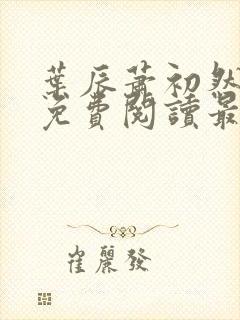 葉辰蕭初然
免費閱讀最
崔麗發